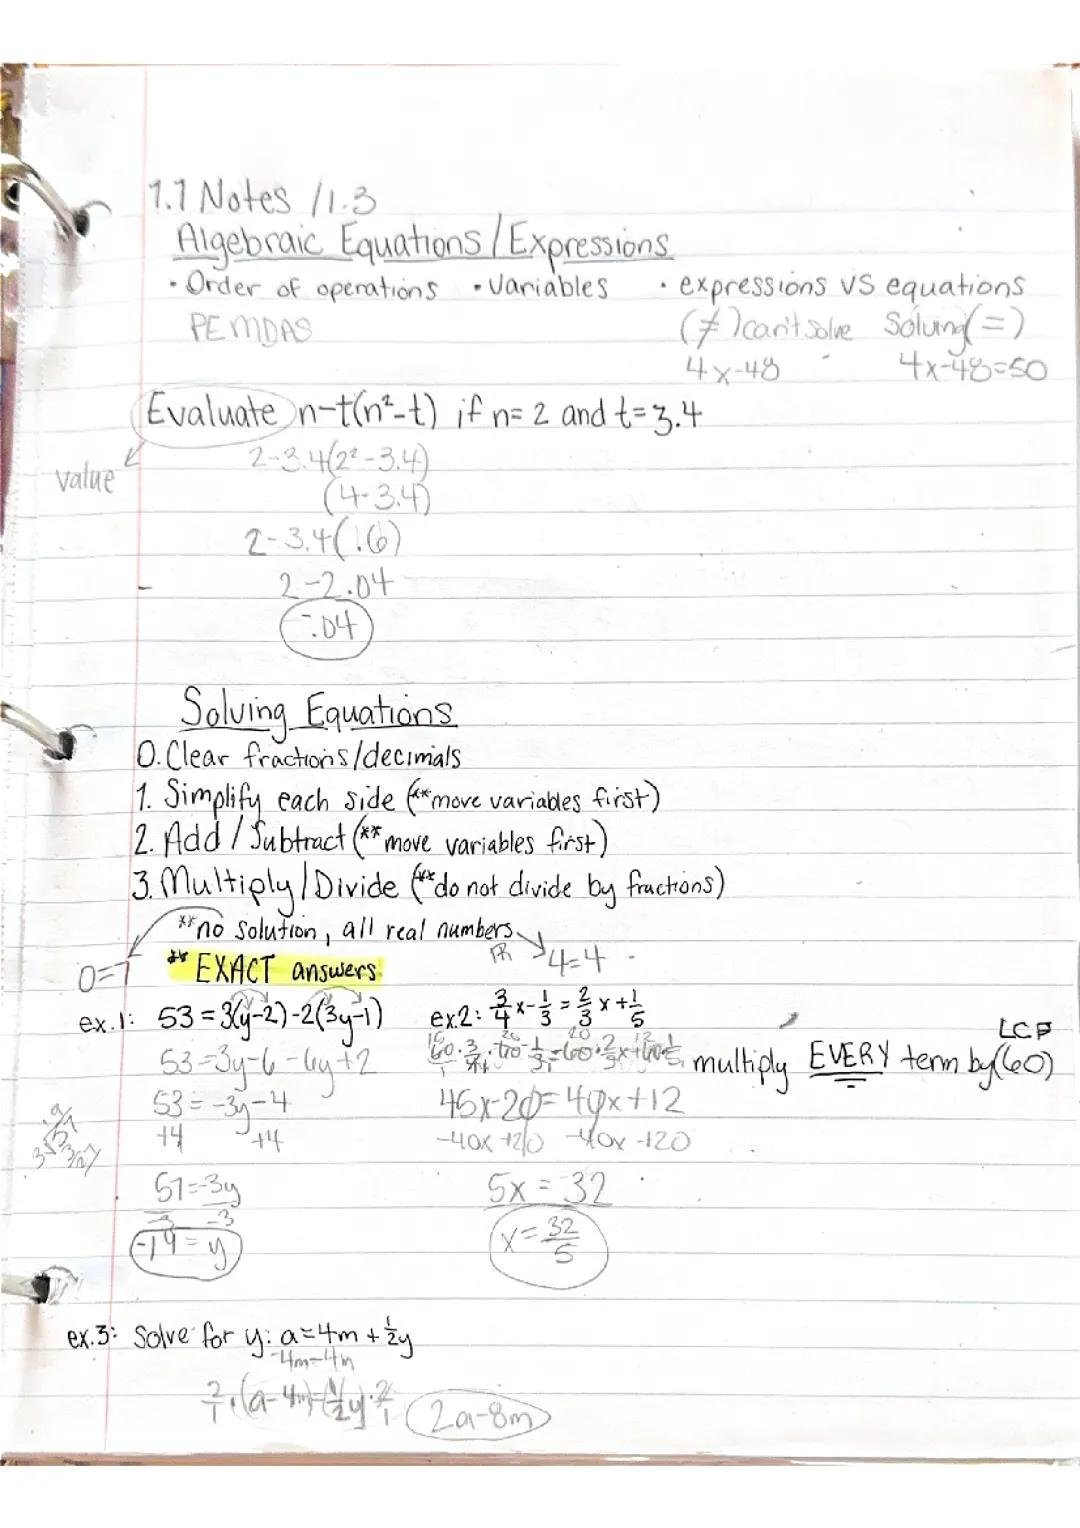 1.1 Notes /1.3
Algebraic Equations/Expressions
• Order of operations • Variables • expressions vs equations
PEMDAS (≠)can't solve Solving(=)
4x-48 4x-48=50
Evaluate n-t(n²-t) if n=2 and t=3.4
value
2-3.4(2²-3.4)
(4-3.4)
2-3.4(.6)
2-2.04
-.04
Solving Equations
0. Clear fractions/decimals
1. Simplify each side (**move variables first)
2. Add / Subtract (**move variables first)
3. Multiply/Divide (**do not divide by fractions)
**no solution, all real numbers
0=7 ** EXACT answers ℝ 4=4
ex.1: 53=3(y-2)-2(3y-1) ex.2: 3/4 x - 1/3 = 2/3 x + 1/5
53=3y-6-6y+2 60· multiply EVERY term by (60) LCD
53=-3y-4 45x-20=40x+12
+4 +4 -40x+20 -40x+20
57=-3y 5x=32
-3 -3
-19=y x=32/5
ex.3: Solve for y: a=4m+1/2y
-4m-4m
2/1·(a-4m)=(1/2y)·2/1 2a-8m